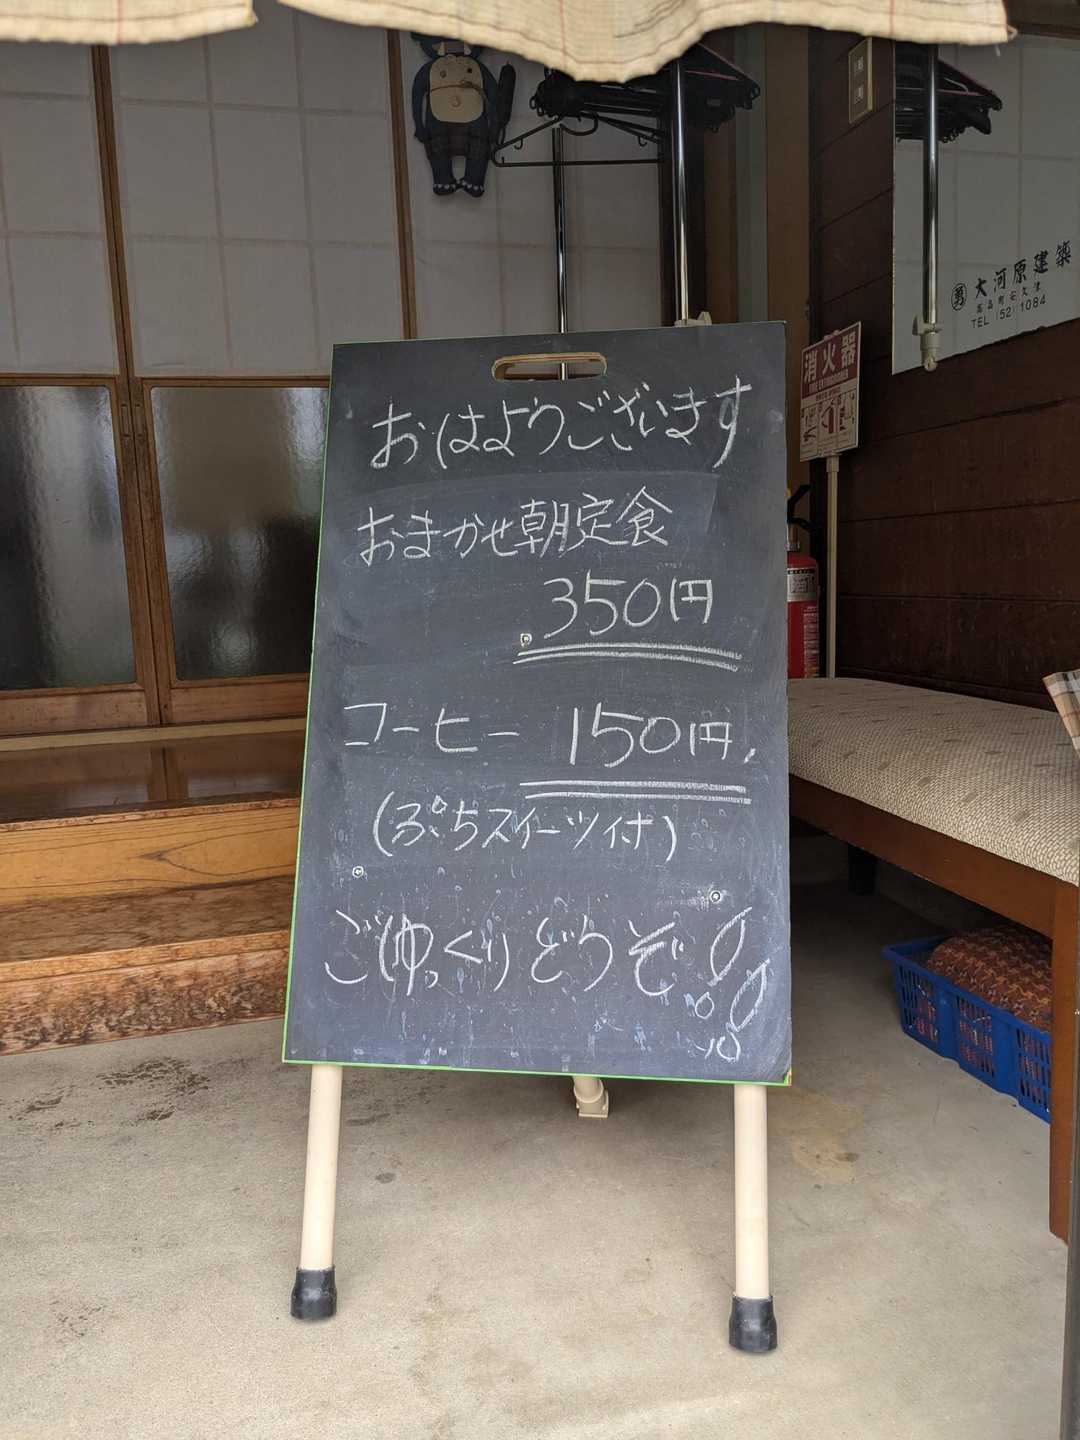 おはようございます
おまかせ朝定食
350円
コーヒー 150円
(ぷちスイーツ付)
ごゆっくりどうぞ!!
大河原建築
TEL (52) 1084
消火器
FIRE EXTINGUISHER